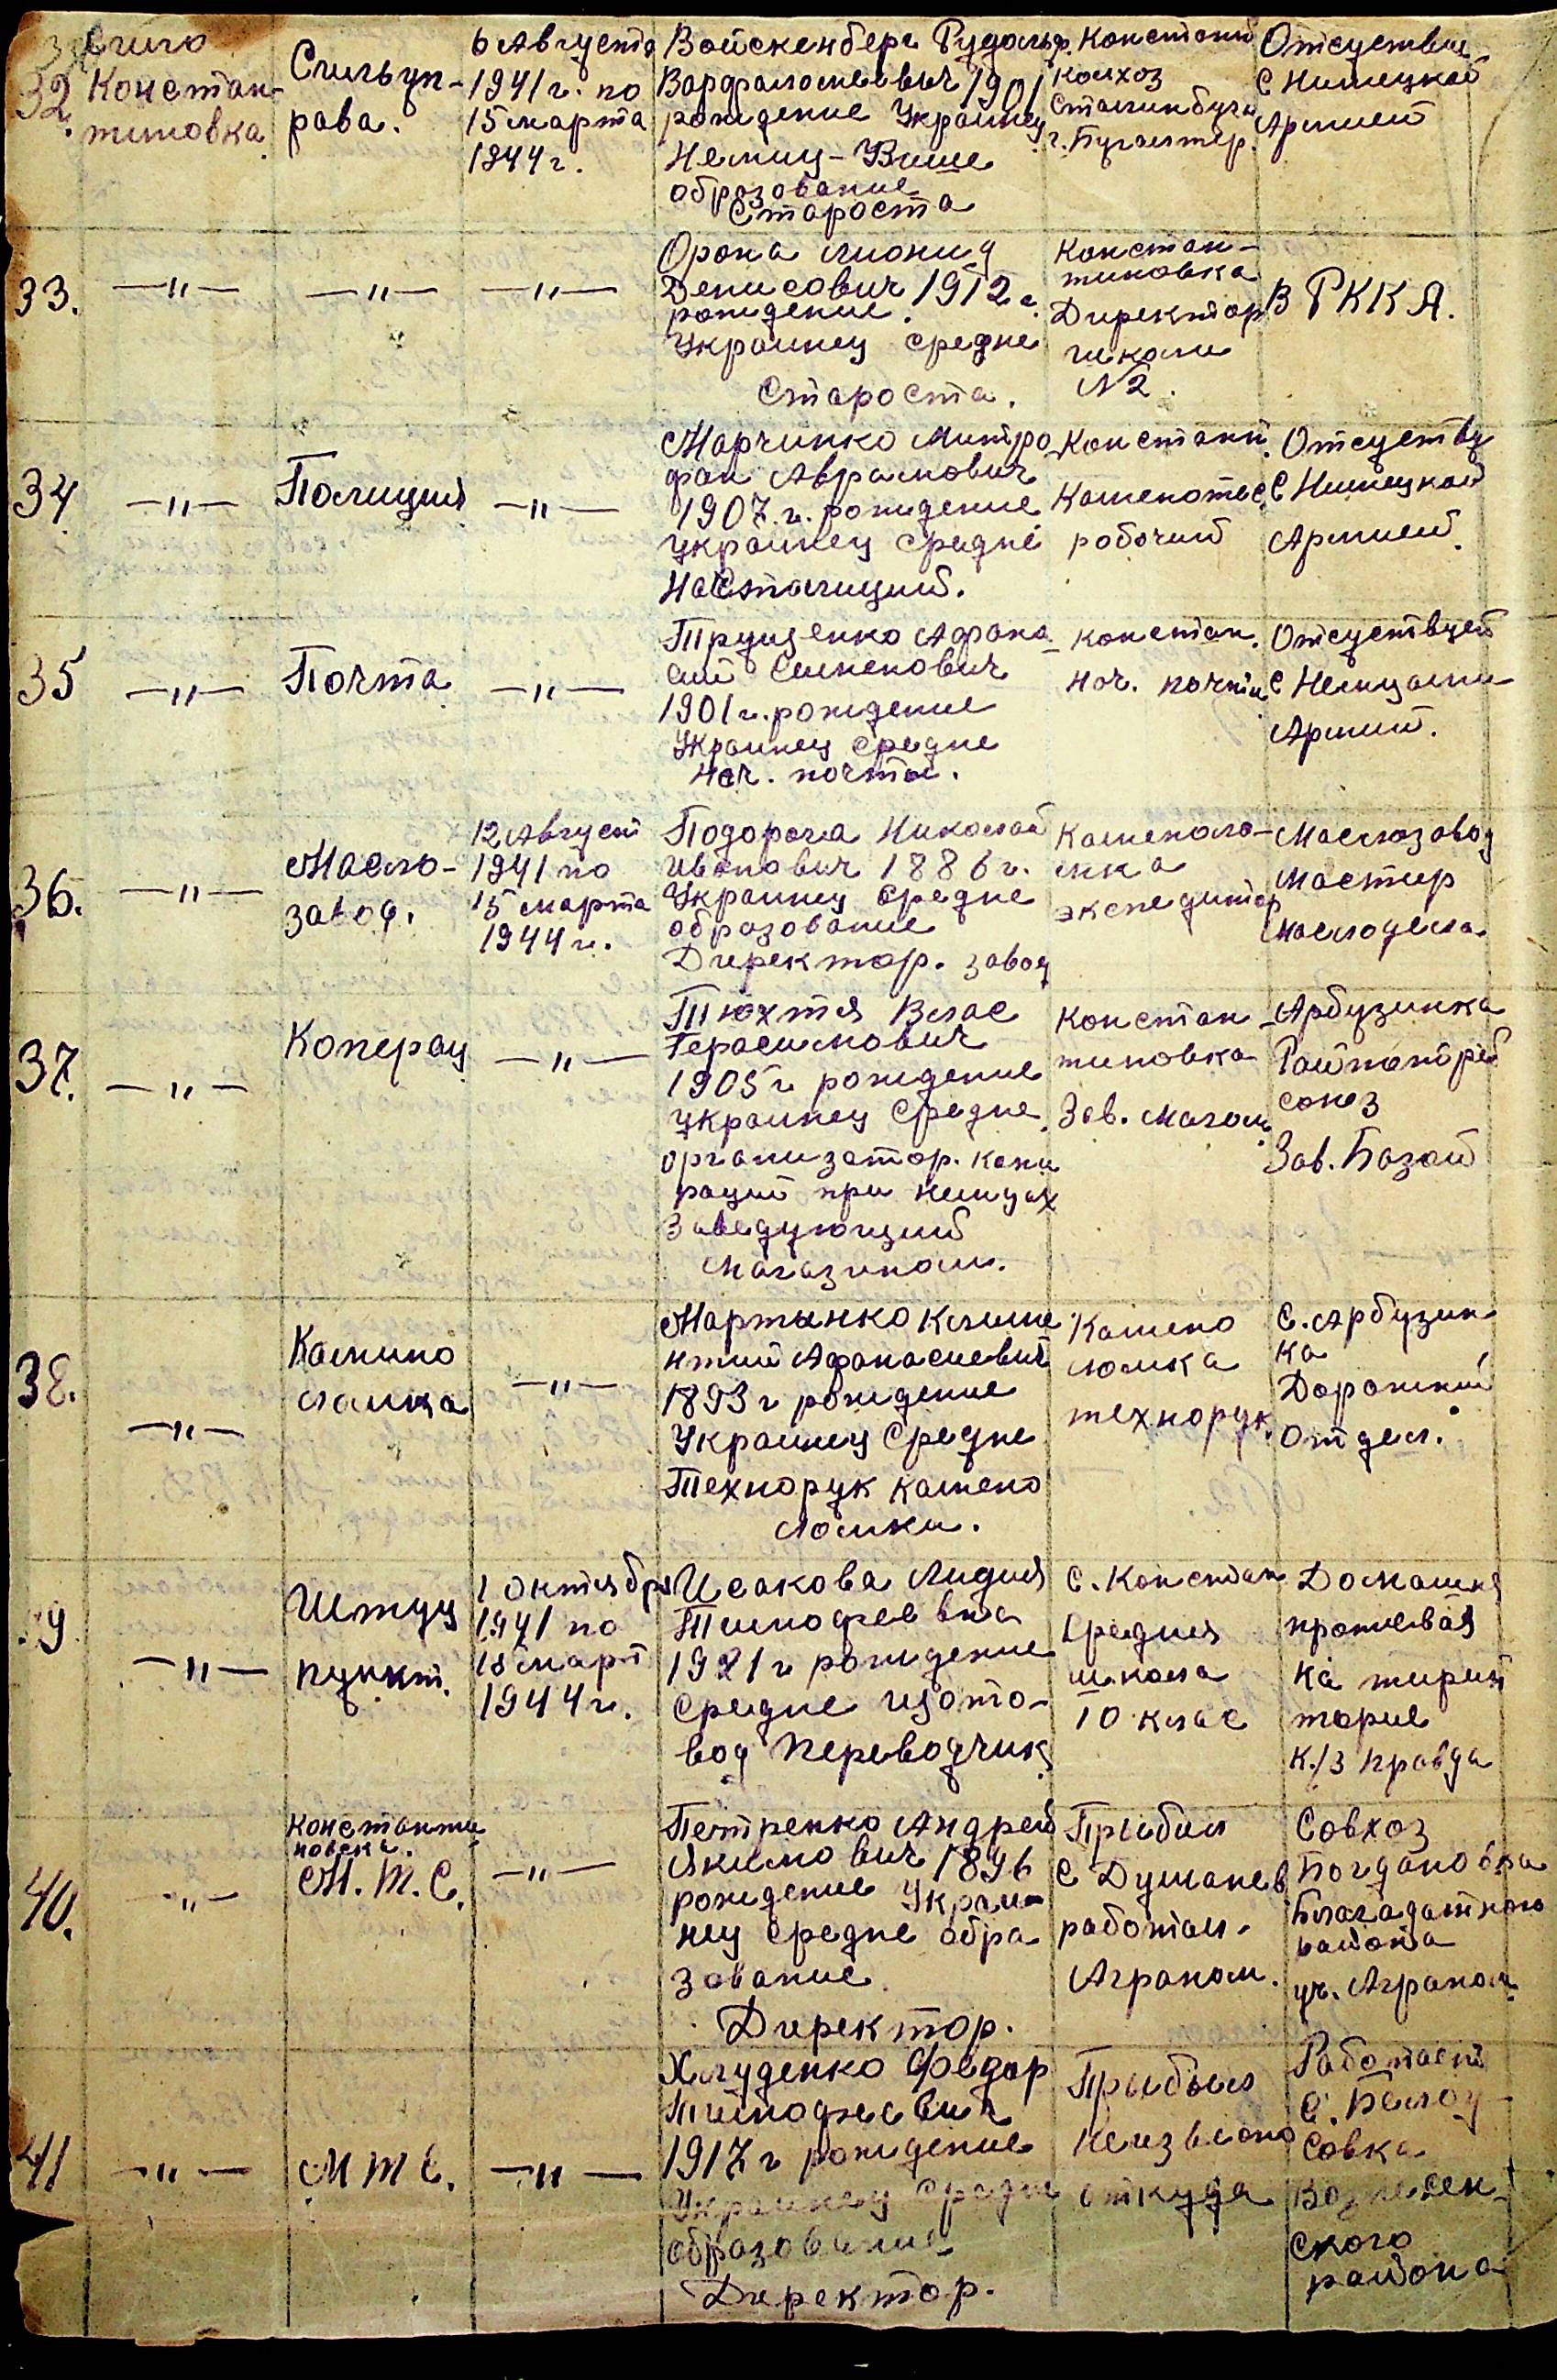 32.
Село
Констан-
тиновка
Сильуп-
рава.
6 Августа
1941 г. по
15 марта
1944 г.
Войскенберг Рудольф
Варфоломеевич 1901
рождение Украинец
Немиц - Више
образование
Староста
Констант
колхоз
Сталинбург
г. Бугалтер.
Отсуствие
С Нимецкой
Армией
33.
—"— —"— —"—
Орона Лионид
Денисович 1912 г.
рождение.
Украинец средне
Староста.
Констан-
тиновка
Директор
школи
№2.
В РККА.
34
—"—
Полиция
—"—
Марчинко Митро
фан Аврамович
1907. г. рождение
Украинец средне
НачПолиций.
Констант.
Каменотес
робочий
Отсуству
С Нимецкой
Армией.
35
—"—
Почта
—"—
Трущенко Афана
сий Сименович
1901 г. рождение
Украинец средне
Нач. почты.
констан.
Нач. почти
Отсуствует
С Немцами
Армий.
36.
—"—
Масло-
завод.
12 Август
1941 по
15 марта
1944 г.
Подорога Николай
Иванович 1886 г.
Украинец средне
образование
Директор. завод
Каменоло-
мка
экспедитор
Маслозавод
Мастир
маслодела.
37.
—"—
Коперац
—"—
Тюхтя Влас
Герасимович
1905 г рождение
Украинец средне
организатор. копи
раций при немцах
Заведующий
Магазином.
Констан
тиновка
Зав. Магом.
Арбузинка
Райпотреб
союз
Зав. Базой
38.
—"—
Камино
ломка
—"—
Мартынко Климе
нтий Афанасиевич
1893 г рождение
Украинец Средне
Технорук камено
ломки.
Камено
ломка
технорук.
С. Арбузин
ка
Дорожний
отдел.
39
—"—
Штуц
пункт.
1 Октября
1941 по
15 март
1944 г.
Исакова Лидия
Тимофеевна
1921 г рождение
Средне щото-
вод Переводчик
С. Констан
Средния
школа
10 клас
Домашня
проживая
на тирит
торие
к/з Правда
40.
"
Константи
новска.
М.Т.С.
—"—
Петренко Андрей
Якимович 1896
рождение Украи-
нец Средне обра
зование
Директор.
Прибил
С Думанев
работал.
Аграном.
Совхоз
Богдановка
Благадатного
района
уч. Аграном
41
—"—
МТС.
—"—
Хлуденко Федор
Тимофеевич
1917 г рождение
Украинец Средне
образование
Директор.
Прибыл
Неизвесно
откуда
Работает
С. Белоу
совка
Вознесен-
ского
района